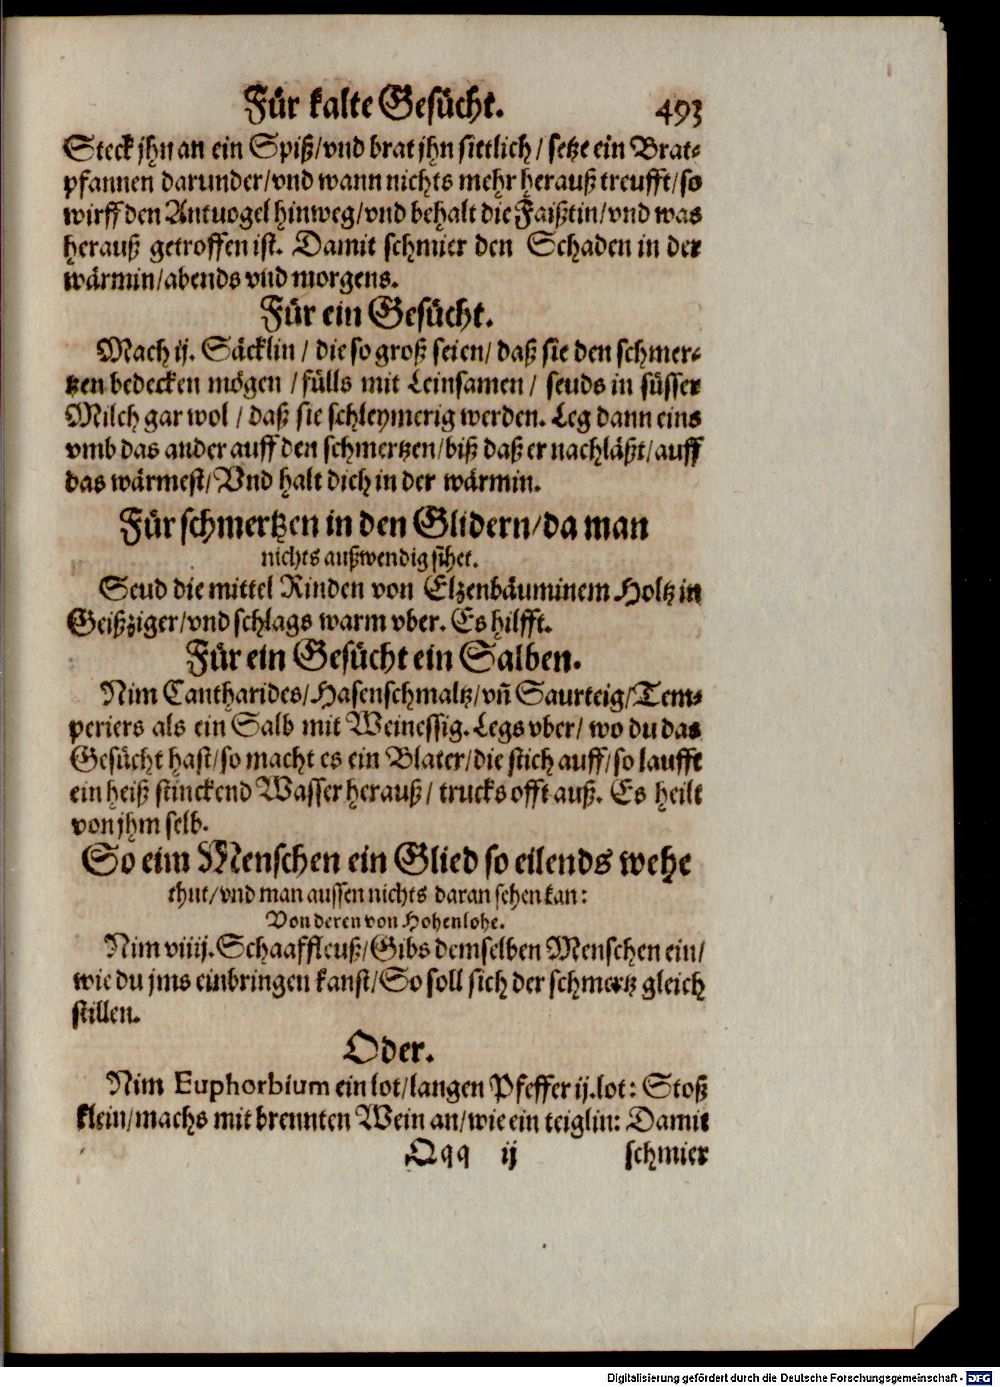 Für kalte Gesücht. 493
Steck jhn an ein Spiß/vnd brat jhn sittlich/ setze ein Brat-
pfannen darunder/vnd wann nichts mehr herauß treufft/so
wirff den Antvogel hinweg/vnd behalt die Faißtin/vnd was
herauß getroffen ist. Damit schmier den Schaden in der
wärmin/abends vnd morgens.
Für ein Gesücht.
Mach ij. Säcklin/ die so groß seien/ daß sie den schmer-
tzen bedecken mögen/ fülls mit Leinsamen/ seuds in süsser
Milch gar wol/ daß sie schleymerig werden. Leg dann eins
vmb das ander auff den schmertzen/biß daß er nachläßt/auff
das wärmest/Vnd halt dich in der wärmin.
Für schmertzen in den Glidern/da man
nichts außwendig sihet.
Seud die mittel Rinden von Elzenbäuminem Holtz in
Geißziger/vnd schlags warm vber. Es hilfft.
Für ein Gesücht ein Salben.
Nim Cantharides/Hasenschmaltz/vñ Saurteig/Tem-
periers als ein Salb mit Weinessig. Legs vber/ wo du das
Gesücht hast/so macht es ein Blater/die stich auff/so laufft
ein heiß stinckend Wasser herauß/ trucks offt auß. Es heilt
von jhm selb.
So eim Menschen ein Glied so eilends wehe
thut/vnd man aussen nichts daran sehen kan:
Von deren von Hohenlohe.
Nim viiij. Schaaffleuß/Gibs demselben Menschen ein/
wie du jms einbringen kanst/So soll sich der schmertz gleich
stillen.
Oder.
Nim Euphorbium ein lot/langen Pfeffer ij.lot: Stoß
klein/machs mit brennten Wein an/wie ein teiglin: Damit
Qqq ij schmier
Digitalisierung gefördert durch die Deutsche Forschungsgemeinschaft - DFG